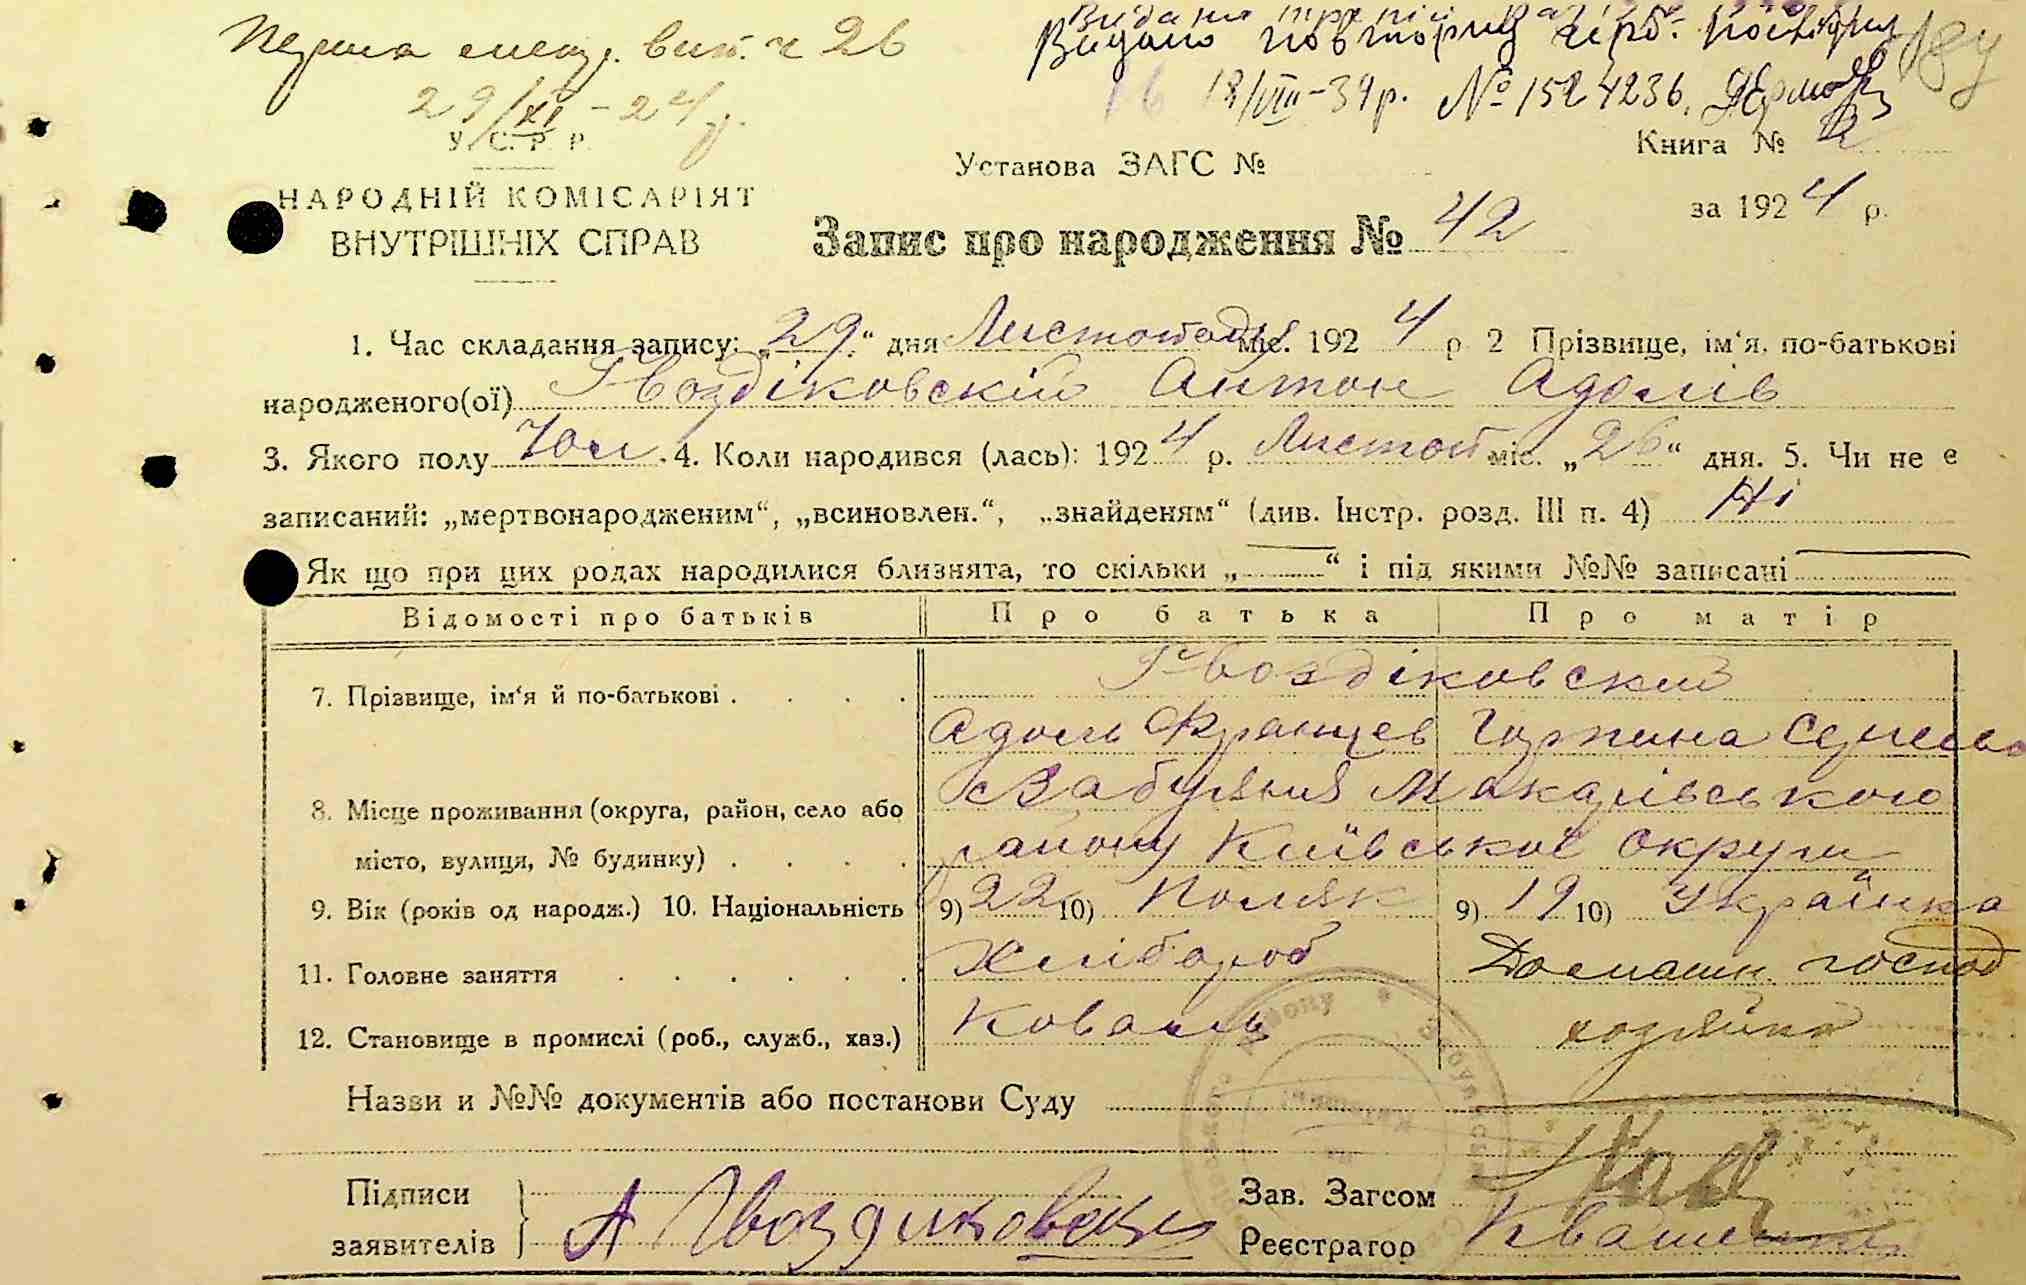 вип. ч 26
Видано повторну
29/XI - 24 р.
18/VIII-39 р. № 1524236.
У. С. Р. Р.
Книга №
Установа ЗАГС №
НАРОДНІЙ КОМІСАРІЯТ
за 1924 р.
ВНУТРІШНІХ СПРАВ
Запис про народження № 42
1. Час складання запису: „29“ дня Листопада міс. 1924 р 2 Прізвище, ім‘я, по-батькові
народженого(ої) Гвоздіковский Антон Адолів
3. Якого полу Чол. 4. Коли народився (лась): 1924 р. Листоп міс. „26“ дня. 5. Чи не є
записаний: „мертвонародженим“, „всиновлен.“, „знайденям“ (див. Інстр. розд. III п. 4) Ні
Як що при цих родах народилися близнята, то скільки „ “ і під якими №№ записані
Відомості про батьків Про батька Про матір
Гвоздіковский
7. Прізвище, ім‘я й по-батькові
Адоль Францев Горпина
с Забуяння Макарівського
8. Місце проживання (округа, район, село або
району Київської округи
місто, вулиця, № будинку)
9. Вік (років од народж.) 10. Національність 9) 22 10) Поляк 9) 19 10) Українка
11. Головне заняття Хлібороб Домашн. господ
12. Становище в промислі (роб., служб., хаз.) Коваль хозяйка
Назви и №№ документів або постанови Суду
Підписи Зав. Загсом
заявителів А Гвоздиковски Реєстратор